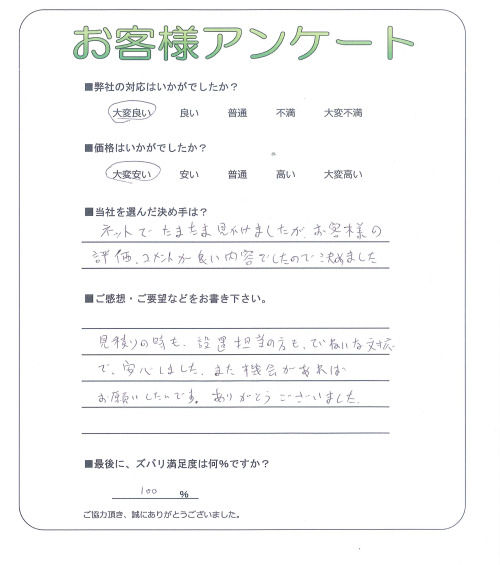 お客様アンケート
■弊社の対応はいかがでしたか？
大変良い 良い 普通 不満 大変不満
■価格はいかがでしたか？
大変安い 安い 普通 高い 大変高い
■当社を選んだ決め手は？
ネットでたまたま見かけましたが、お客様の
評価、コメントが良い内容でしたので決めました
■ご感想・ご要望などをお書き下さい。
見積りの時も、設置担当の方も、ていねいな対応
で、安心しました。また機会があれば
お願いしたいです。ありがとうございました。
■最後に、ズバリ満足度は何％ですか？
100 ％
ご協力頂き、誠にありがとうございました。